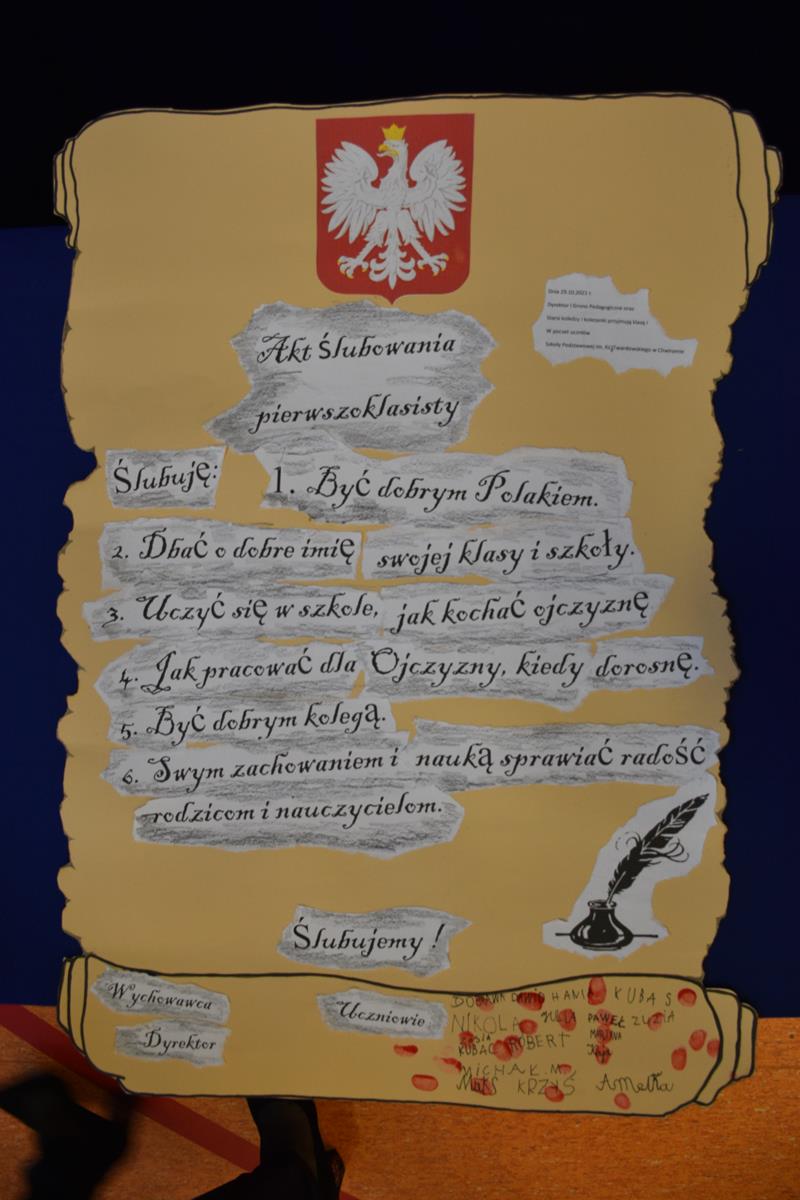 Dnia 29.10.2021 r.
Dyrektor i Grono Pedagogiczne oraz
Starsi koledzy i koleżanki przyjmują klasę I
W poczet uczniów
Szkoły Podstawowej im. Ks. Twardowskiego w Chwiramie
Akt Ślubowania
pierwszoklasisty
Ślubuję: 1. Być dobrym Polakiem.
2. Dbać o dobre imię swojej klasy i szkoły.
3. Uczyć się w szkole, jak kochać ojczyznę
4. Jak pracować dla Ojczyzny, kiedy dorosnę.
5. Być dobrym kolegą.
6. Swym zachowaniem i nauką sprawiać radość
rodzicom i nauczycielom.
Ślubujemy !
Wychowawca
Dyrektor
Uczniowie
DAWID HANIA KUBA S
NIKOLA JULIA PAWEŁ ZUZIA
ZOSIA MARTYNA
KUBA ROBERT Kaja
MICHAŁ M.
MAKS KRZYŚ AMELKA